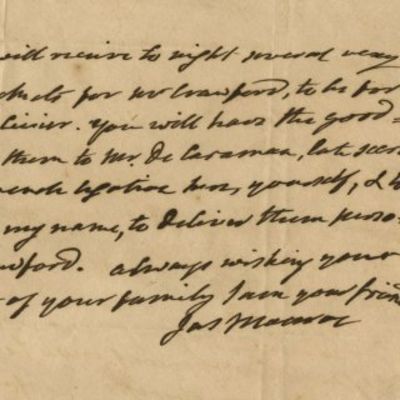 will receive to night several very
for Mr Crawford, to be for
You will have the good=
them to Mr. De Caraman, late secre
legation here, yourself, &
my name, to deliver them perso=
wford. always wishing your
of your family I am your friend
Jas Monroe